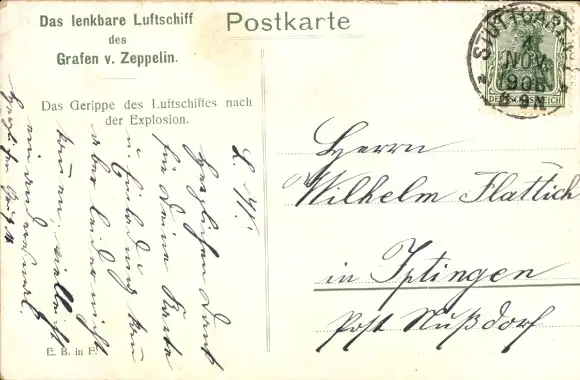 Das lenkbare Luftschiff
des
Grafen v. Zeppelin.
Das Gerippe des Luftschiffes nach
der Explosion.
Postkarte
STUTTGART
NOV.
DEUTSCHES REICH
Herrn
Wilhelm Flattich
in Iptingen
Post Nußdorf
L. W.
Herzlichen Dank
für Deine Karte
u. Einladung
aber leider nicht
vielleicht
ein andermal.
E. B. in F.